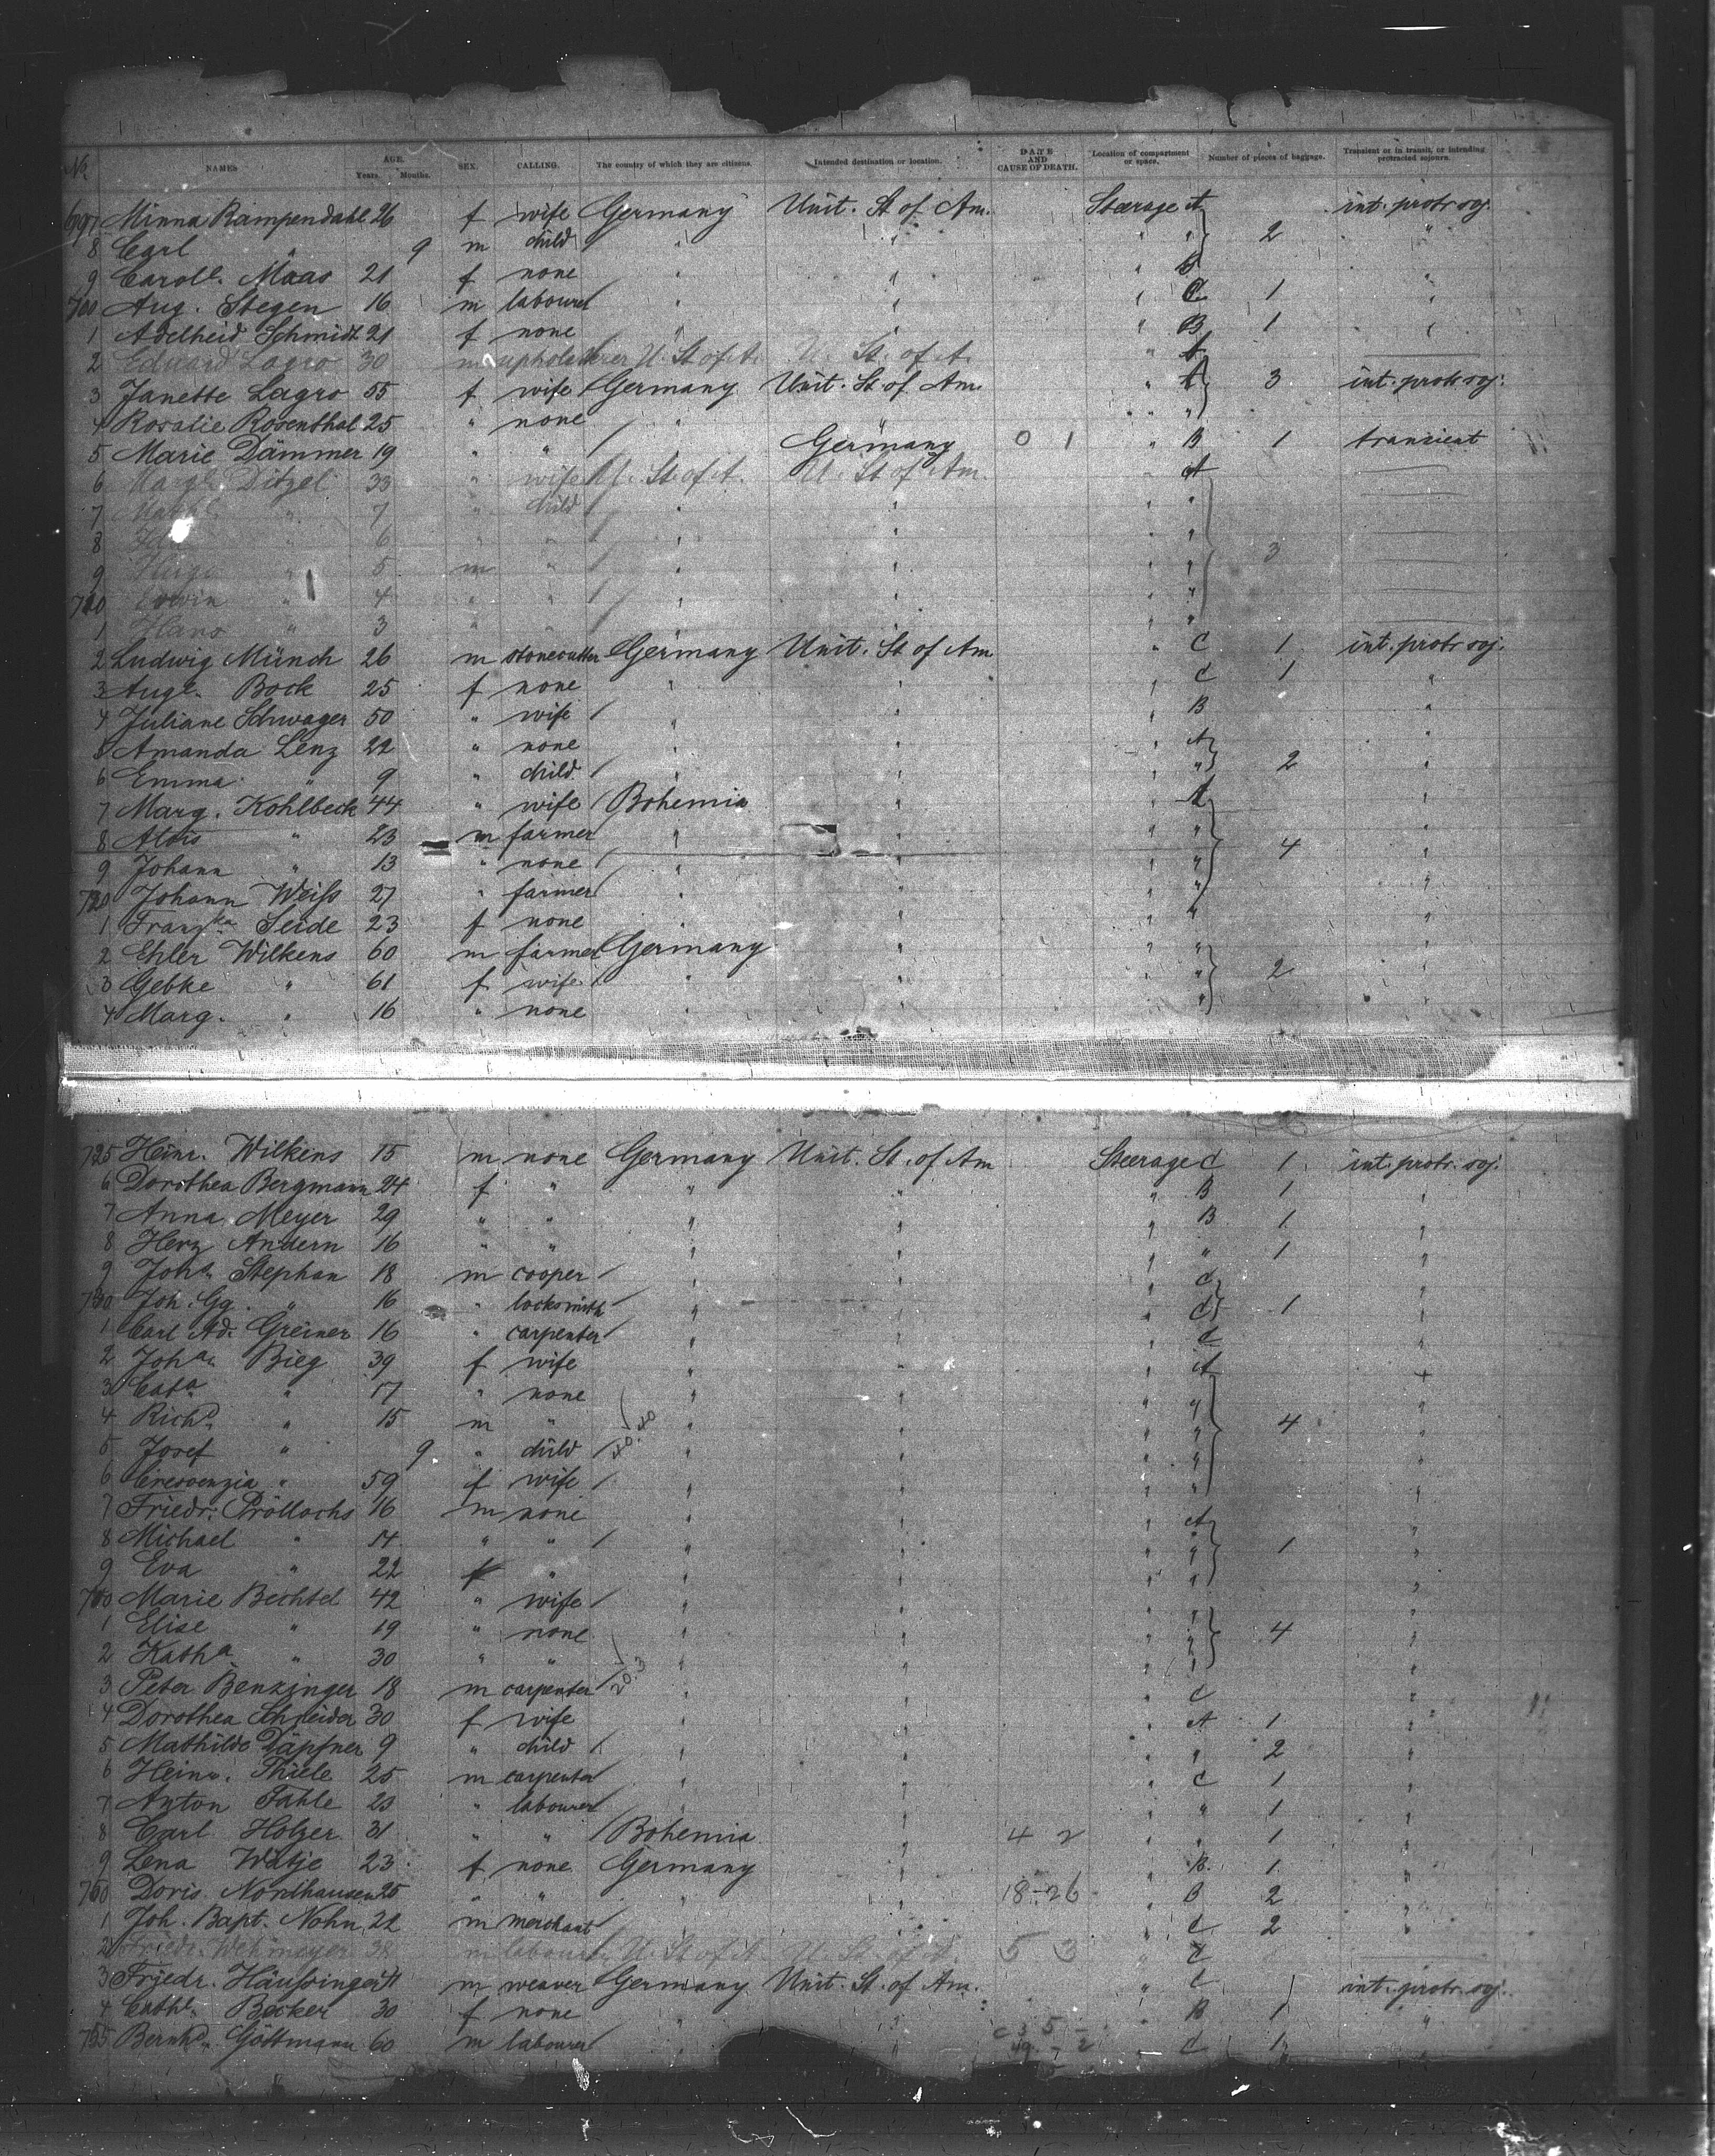 No. NAMES AGE. Years. Months. SEX. CALLING. The country of which they are citizens. Intended destination or location. DATE AND CAUSE OF DEATH. Location of compartment or space. Number of pieces of baggage. Transient or in transit, or intending protracted sojourn.
697 Minna Rampendahl 26 f wife Germany Unit. St. of Am. Steerage A int. protr. soj.
8 Carl " 9 m child " " " " 2 "
9 Caroll. Maas 21 f none " " " "
700 Aug. Stegen 16 m labourer " " " C 1 "
1 Adelheid Schmidt 21 f none " " " B 1 "
2 Eduard Lagro 30 m upholsterer U. St. of A. U. St. of A. " A
3 Janette Lagro 55 f wife Germany Unit. St. of Am. " A 3 int. protr. soj.
4 Rosalie Rosenthal 25 " none " " "
5 Marie Dämmer 19 " " Germany 0 1 " B 1 transient
6 Ditzel 33 " wife U. St. of A. U. St. of Am. " A
7 " 7 " child " " " "
8 " 6 " " " " " " 3
9 Hugo " 5 m " " " " "
710 Erwin " 4 " " " " " "
1 Hans " 3 " " " " " "
2 Ludwig Münch 26 m stonecutter Germany Unit. St. of Am. " C 1 int. protr. soj.
3 Auge. Bock 25 f none " " " C 1 "
4 Juliane Schwager 50 " wife " " " B "
5 Amanda Lenz 22 " none " " " A "
6 Emma " 9 " child " " " " 2 "
7 Marg. Kohlbeck 44 " wife Bohemia " " A "
8 Alois " 23 m farmer " " " " "
9 Johann " 13 " none " " " " 4 "
720 Johann Weiss 27 " farmer " " " " "
1 Franzka Seide 23 f none " " " " "
2 Ehler Wilkens 60 m farmer Germany " " " "
3 Gebke " 61 f wife " " " " 2 "
4 Marg. " 16 " none " " " " "
725 Heinr. Wilkens 15 m none Germany Unit. St. of Am Steerage C 1 int. protr. soj.
6 Dorothea Bergmann 24 f " " " " B 1 "
7 Anna Meyer 29 " " " " " B 1 "
8 Herz Andern 16 " " " " " " 1 "
9 Johs. Stephan 18 m cooper " " " C "
730 Joh. Gg. " 16 " locksmith " " " C 1 "
1 Carl Ad. Greiner 16 " carpenter " " " C "
2 Joha. Bieg 39 f wife " " " A "
3 Cata " 17 " none " " " " "
4 Richd. " 15 m " " " " " 4 "
5 Josef " 9 " child " " " " "
6 Crescenzia " 59 f wife " " " " "
7 Friedr. Pröllochs 16 m none " " " A "
8 Michael " 14 " " " " " " 1 "
9 Eva " 22 f " " " " " "
740 Marie Bechtel 42 " wife " " " " "
1 Elise " 19 " none " " " " 4 "
2 Katha " 30 " " " " " " "
3 Peter Benzinger 18 m carpenter " " " C "
4 Dorothea Schneider 30 f wife " " " A 1 "
5 Mathilde Däpfner 9 " child " " " " 2 "
6 Heinr. Thiele 25 m carpenter " " " C 1 "
7 Anton Fahle 23 " labourer " " " " 1 "
8 Carl Holzer 31 " " Bohemia " 4 2 " " 1 "
9 Lena Wätje 23 f none Germany " " B. 1 "
750 Doris Nordhausen 25 " " " " 18-26 " B 2 "
1 Joh. Bapt. Nohn 22 m merchant " " " C 2 "
2 Friedr. Wehmeyer 38 m labourer U. St. of A. U. St. of A. 5 3 " C
3 Friedr. Häussinger m weaver Germany Unit. St. of Am. " C int. protr. soj.
4 Cathe. Becker 30 f none " " " B 1 "
755 Bernhd. Göttmann 60 m labourer " C 1 "